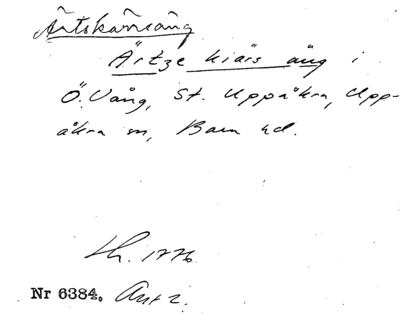 Ärtskärsäng
Ärtze kiärs äng i
Ö. Vång, St. Uppåkra, Upp-
åkra sn, Bara hd.
Lh. 1776
Nr 6384.